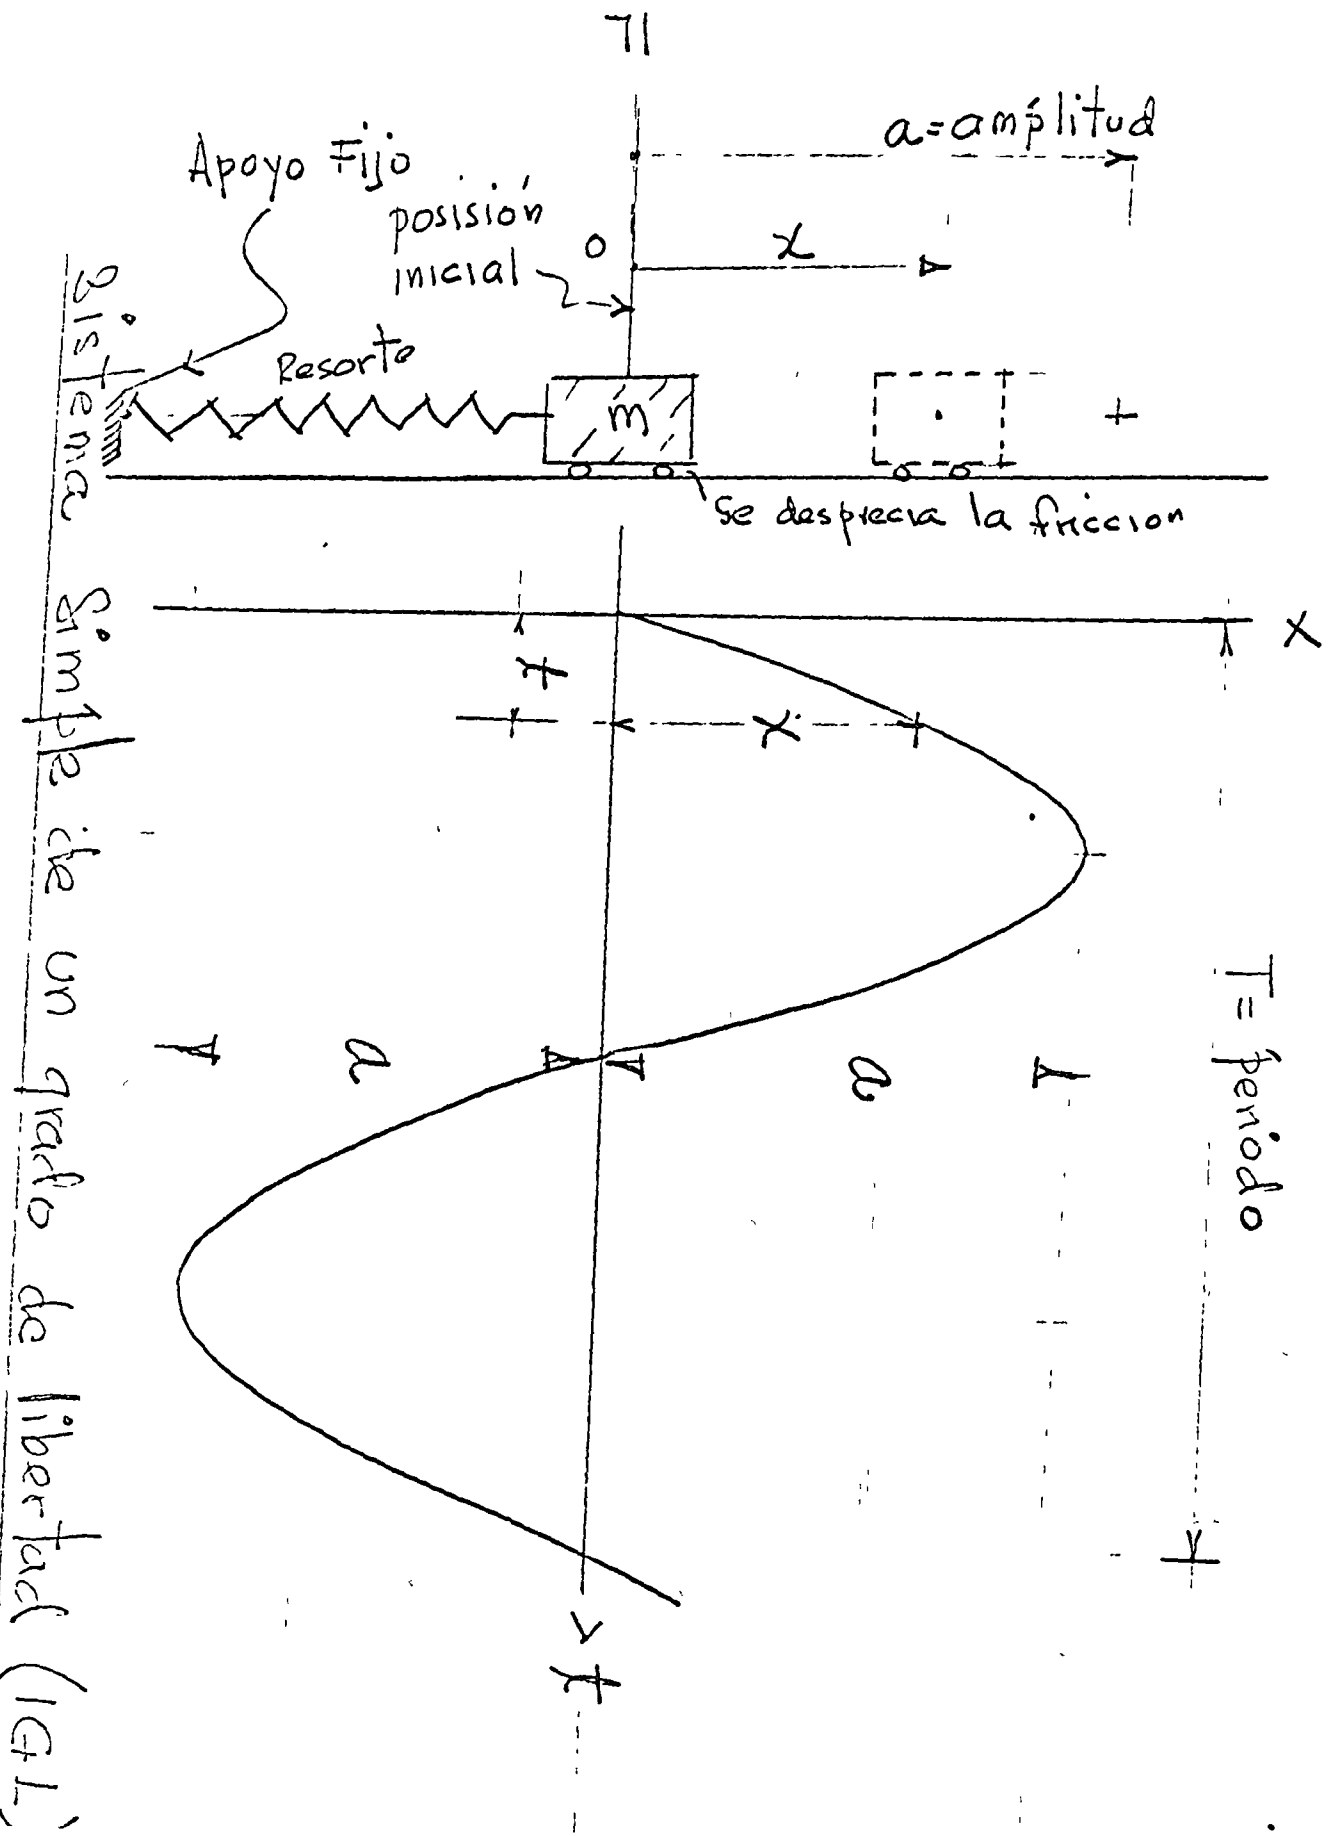 71
a=amplitud
Apoyo Fijo
posisión
inicial
o
x
Resorte
m
+
Se desprecia la friccion
x
t
x
T= período
a
a
t
Sistema Simple de un grado de libertad (1GL)